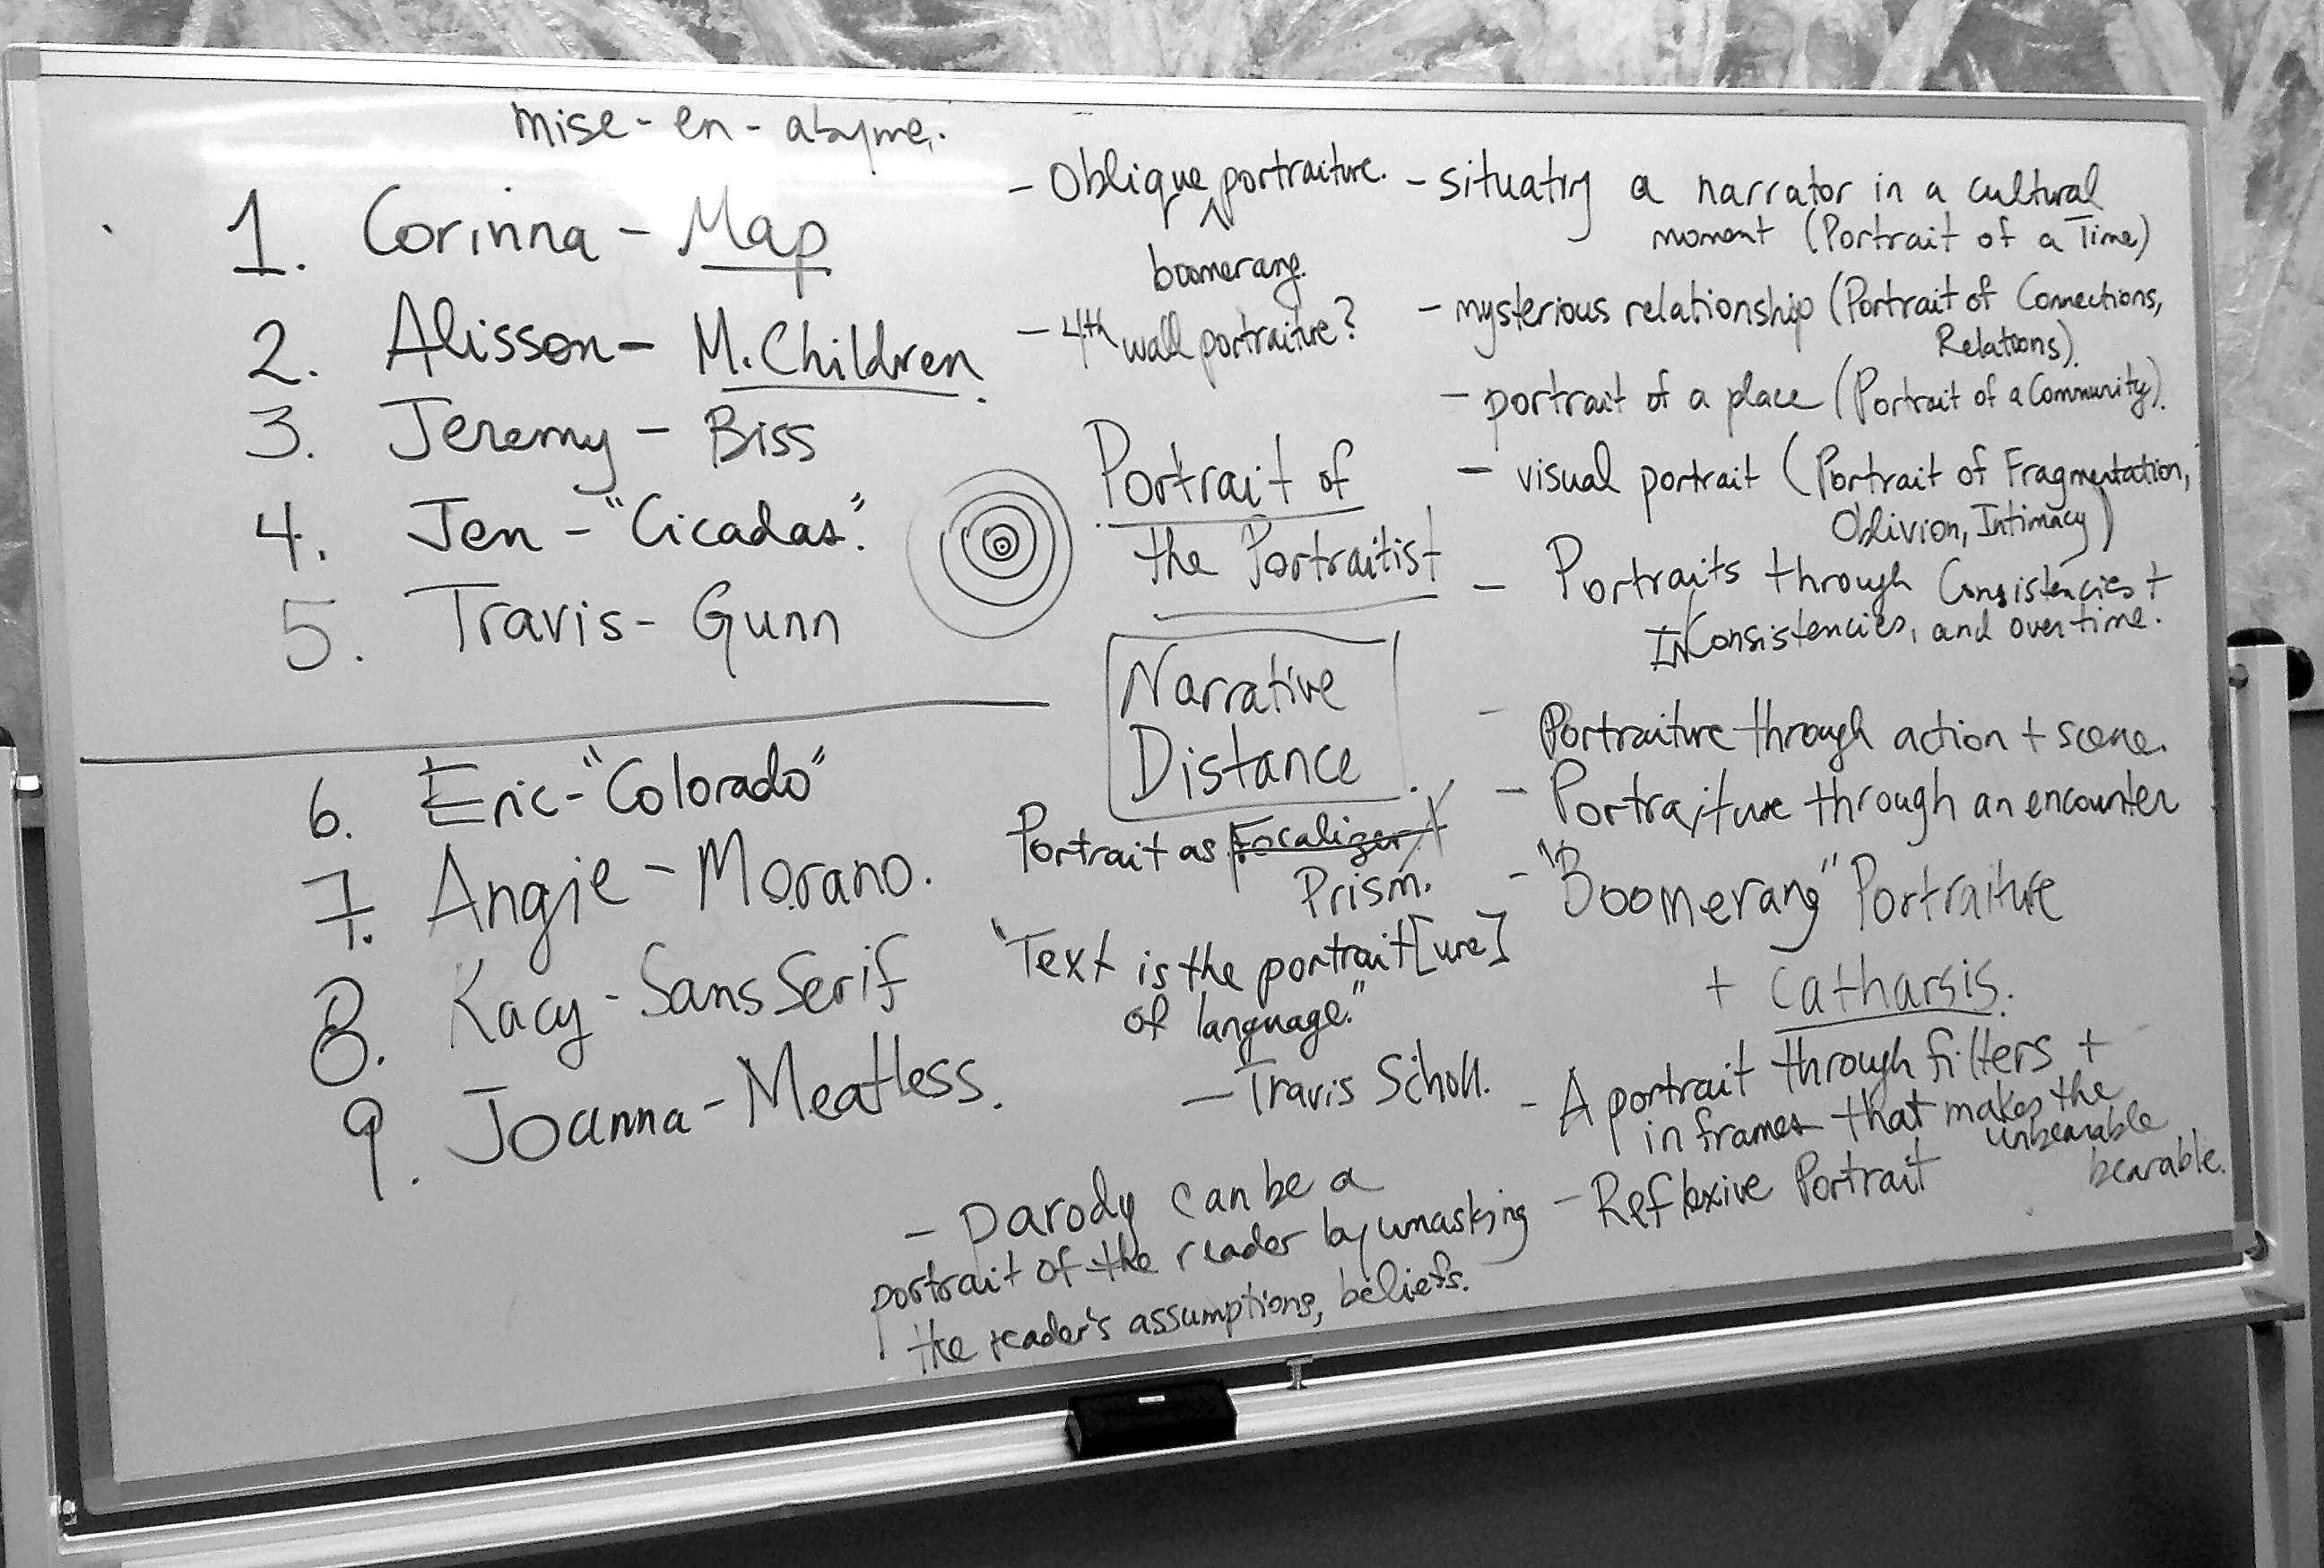 mise-en-abyme.
1. Corinna - Map
2. Alisson - M. Children.
3. Jeremy - Biss
4. Jen - "Cicadas".
5. Travis - Gunn
6. Eric - "Colorado"
7. Angie - Morano.
8. Kacy - Sans Serif
9. Joanna - Meatless.
- Oblique ^ portraiture.
boomerang.
- 4th wall portraiture?
Portrait of
the Portraitist
Narrative
Distance.
Portrait as Focalizer
Prism.
"Text is the portrait[ure]
of language."
- Travis Scholl.
- Parody can be a
portrait of the reader by unmasking
the reader's assumptions, beliefs.
- situating a narrator in a cultural
moment (Portrait of a Time)
- mysterious relationship (Portrait of Connections,
Relations).
- portrait of a place (Portrait of a Community).
- visual portrait (Portrait of Fragmentation,
Oblivion, Intimacy)
- Portraits through Consistencies +
INConsistencies, and over time.
- Portraiture through action + scene.
- Portraiture through an encounter
- "Boomerang" Portraiture
+ catharsis.
- A portrait through filters +
in frames that makes the
unbearable
bearable.
- Reflexive Portrait